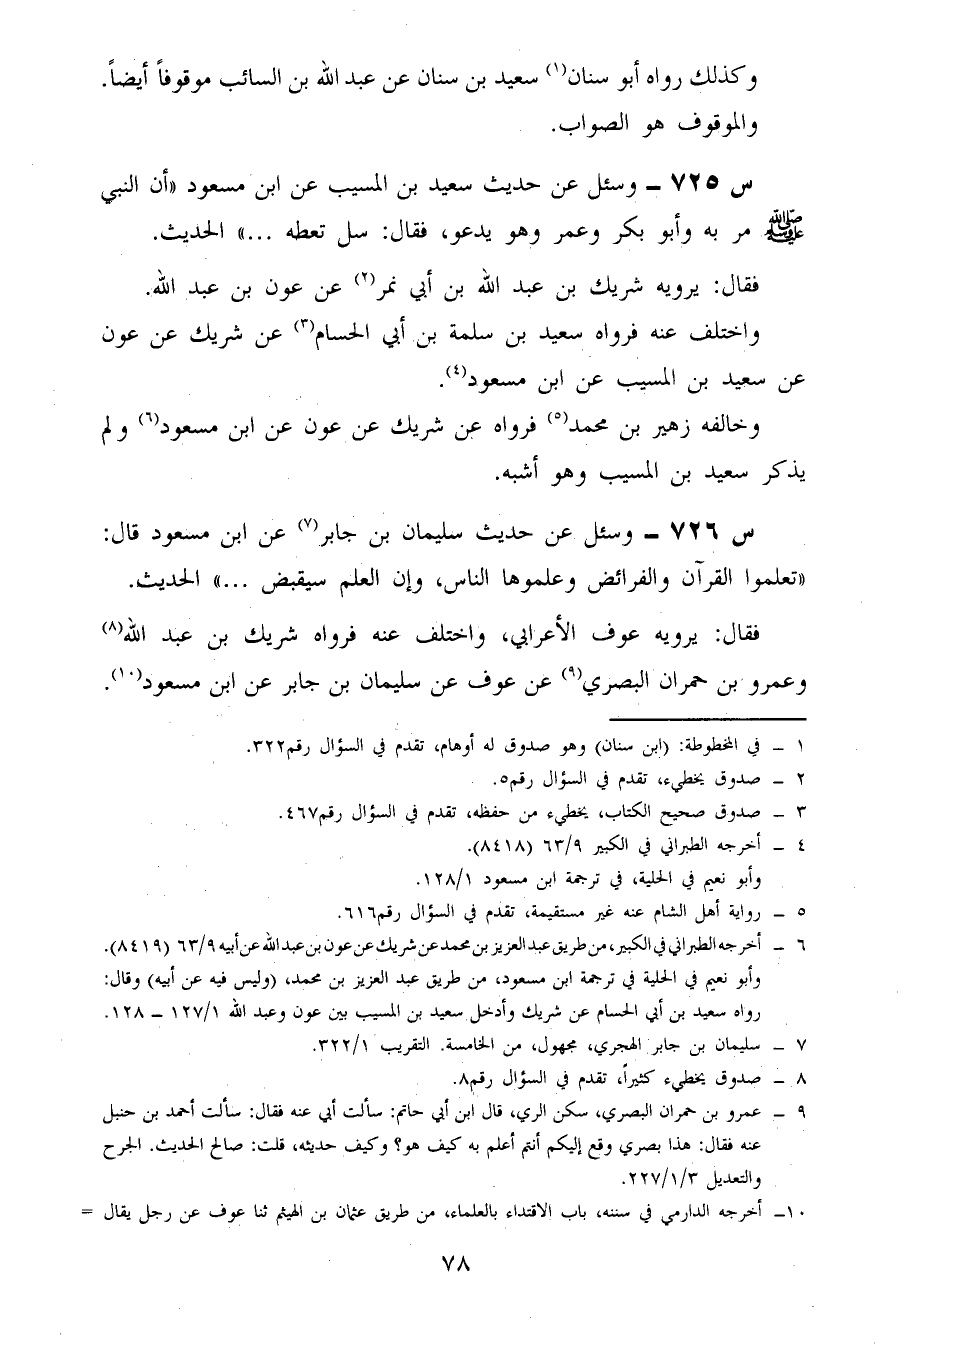 وكذلك رواه أبو سنان(١) سعيد بن سنان عن عبد الله بن السائب موقوفاً أيضاً.
والموقوف هو الصواب.
س ٧٢٥ ــ وسئل عن حديث سعيد بن المسيب عن ابن مسعود «أن النبي
ﷺ مر به وأبو بكر وعمر وهو يدعو، فقال: سل تعطه ...» الحديث.
فقال: يرويه شريك بن عبد الله بن أبي نمر(٢) عن عون بن عبد الله.
واختلف عنه فرواه سعيد بن سلمة بن أبي الحسام(٣) عن شريك عن عون
عن سعيد بن المسيب عن ابن مسعود(٤).
وخالفه زهير بن محمد(٥) فرواه عن شريك عن عون عن ابن مسعود(٦) ولم
يذكر سعيد بن المسيب وهو أشبه.
س ٧٢٦ ــ وسئل عن حديث سليمان بن جابر(٧) عن ابن مسعود قال:
«تعلموا القرآن والفرائض وعلموها الناس، وإن العلم سيقبض ...» الحديث.
فقال: يرويه عوف الأعرابي، واختلف عنه فرواه شريك بن عبد الله(٨)
وعمرو بن حمران البصري(٩) عن عوف عن سليمان بن جابر عن ابن مسعود(١٠).
١ ــ في المخطوطة: (ابن سنان) وهو صدوق له أوهام، تقدم في السؤال رقم٣٢٢.
٢ ــ صدوق يخطىء، تقدم في السؤال رقم٥.
٣ ــ صدوق صحيح الكتاب، يخطىء من حفظه، تقدم في السؤال رقم٤٦٧.
٤ ــ أخرجه الطبراني في الكبير ٦٣/٩ (٨٤١٨).
وأبو نعيم في الحلية، في ترجمة ابن مسعود ١٢٨/١.
٥ ــ رواية أهل الشام عنه غير مستقيمة، تقدم في السؤال رقم٦١٦.
٦ ــ أخرجه الطبراني في الكبير، من طريق عبد العزيز بن محمد عن شريك عن عون بن عبد الله عن أبيه ٦٣/٩ (٨٤١٩).
وأبو نعيم في الحلية في ترجمة ابن مسعود، من طريق عبد العزيز بن محمد، (وليس فيه عن أبيه) وقال:
رواه سعيد بن أبي الحسام عن شريك وأدخل سعيد بن المسيب بين عون وعبد الله ١٢٧/١ ــ ١٢٨.
٧ ــ سليمان بن جابر الهجري، مجهول، من الخامسة. التقريب ٣٢٢/١.
٨ ــ صدوق يخطىء كثيراً، تقدم في السؤال رقم٨.
٩ ــ عمرو بن حمران البصري، سكن الري، قال ابن أبي حاتم: سألت أبي عنه فقال: سألت أحمد بن حنبل
عنه فقال: هذا بصري وقع إليكم أنتم أعلم به كيف هو؟ وكيف حديثه، قلت: صالح الحديث. الجرح
والتعديل ٢٢٧/١/٣.
١٠ــ أخرجه الدارمي في سننه، باب الاقتداء بالعلماء، من طريق عثمان بن الهيثم ثنا عوف عن رجل يقال =
٧٨